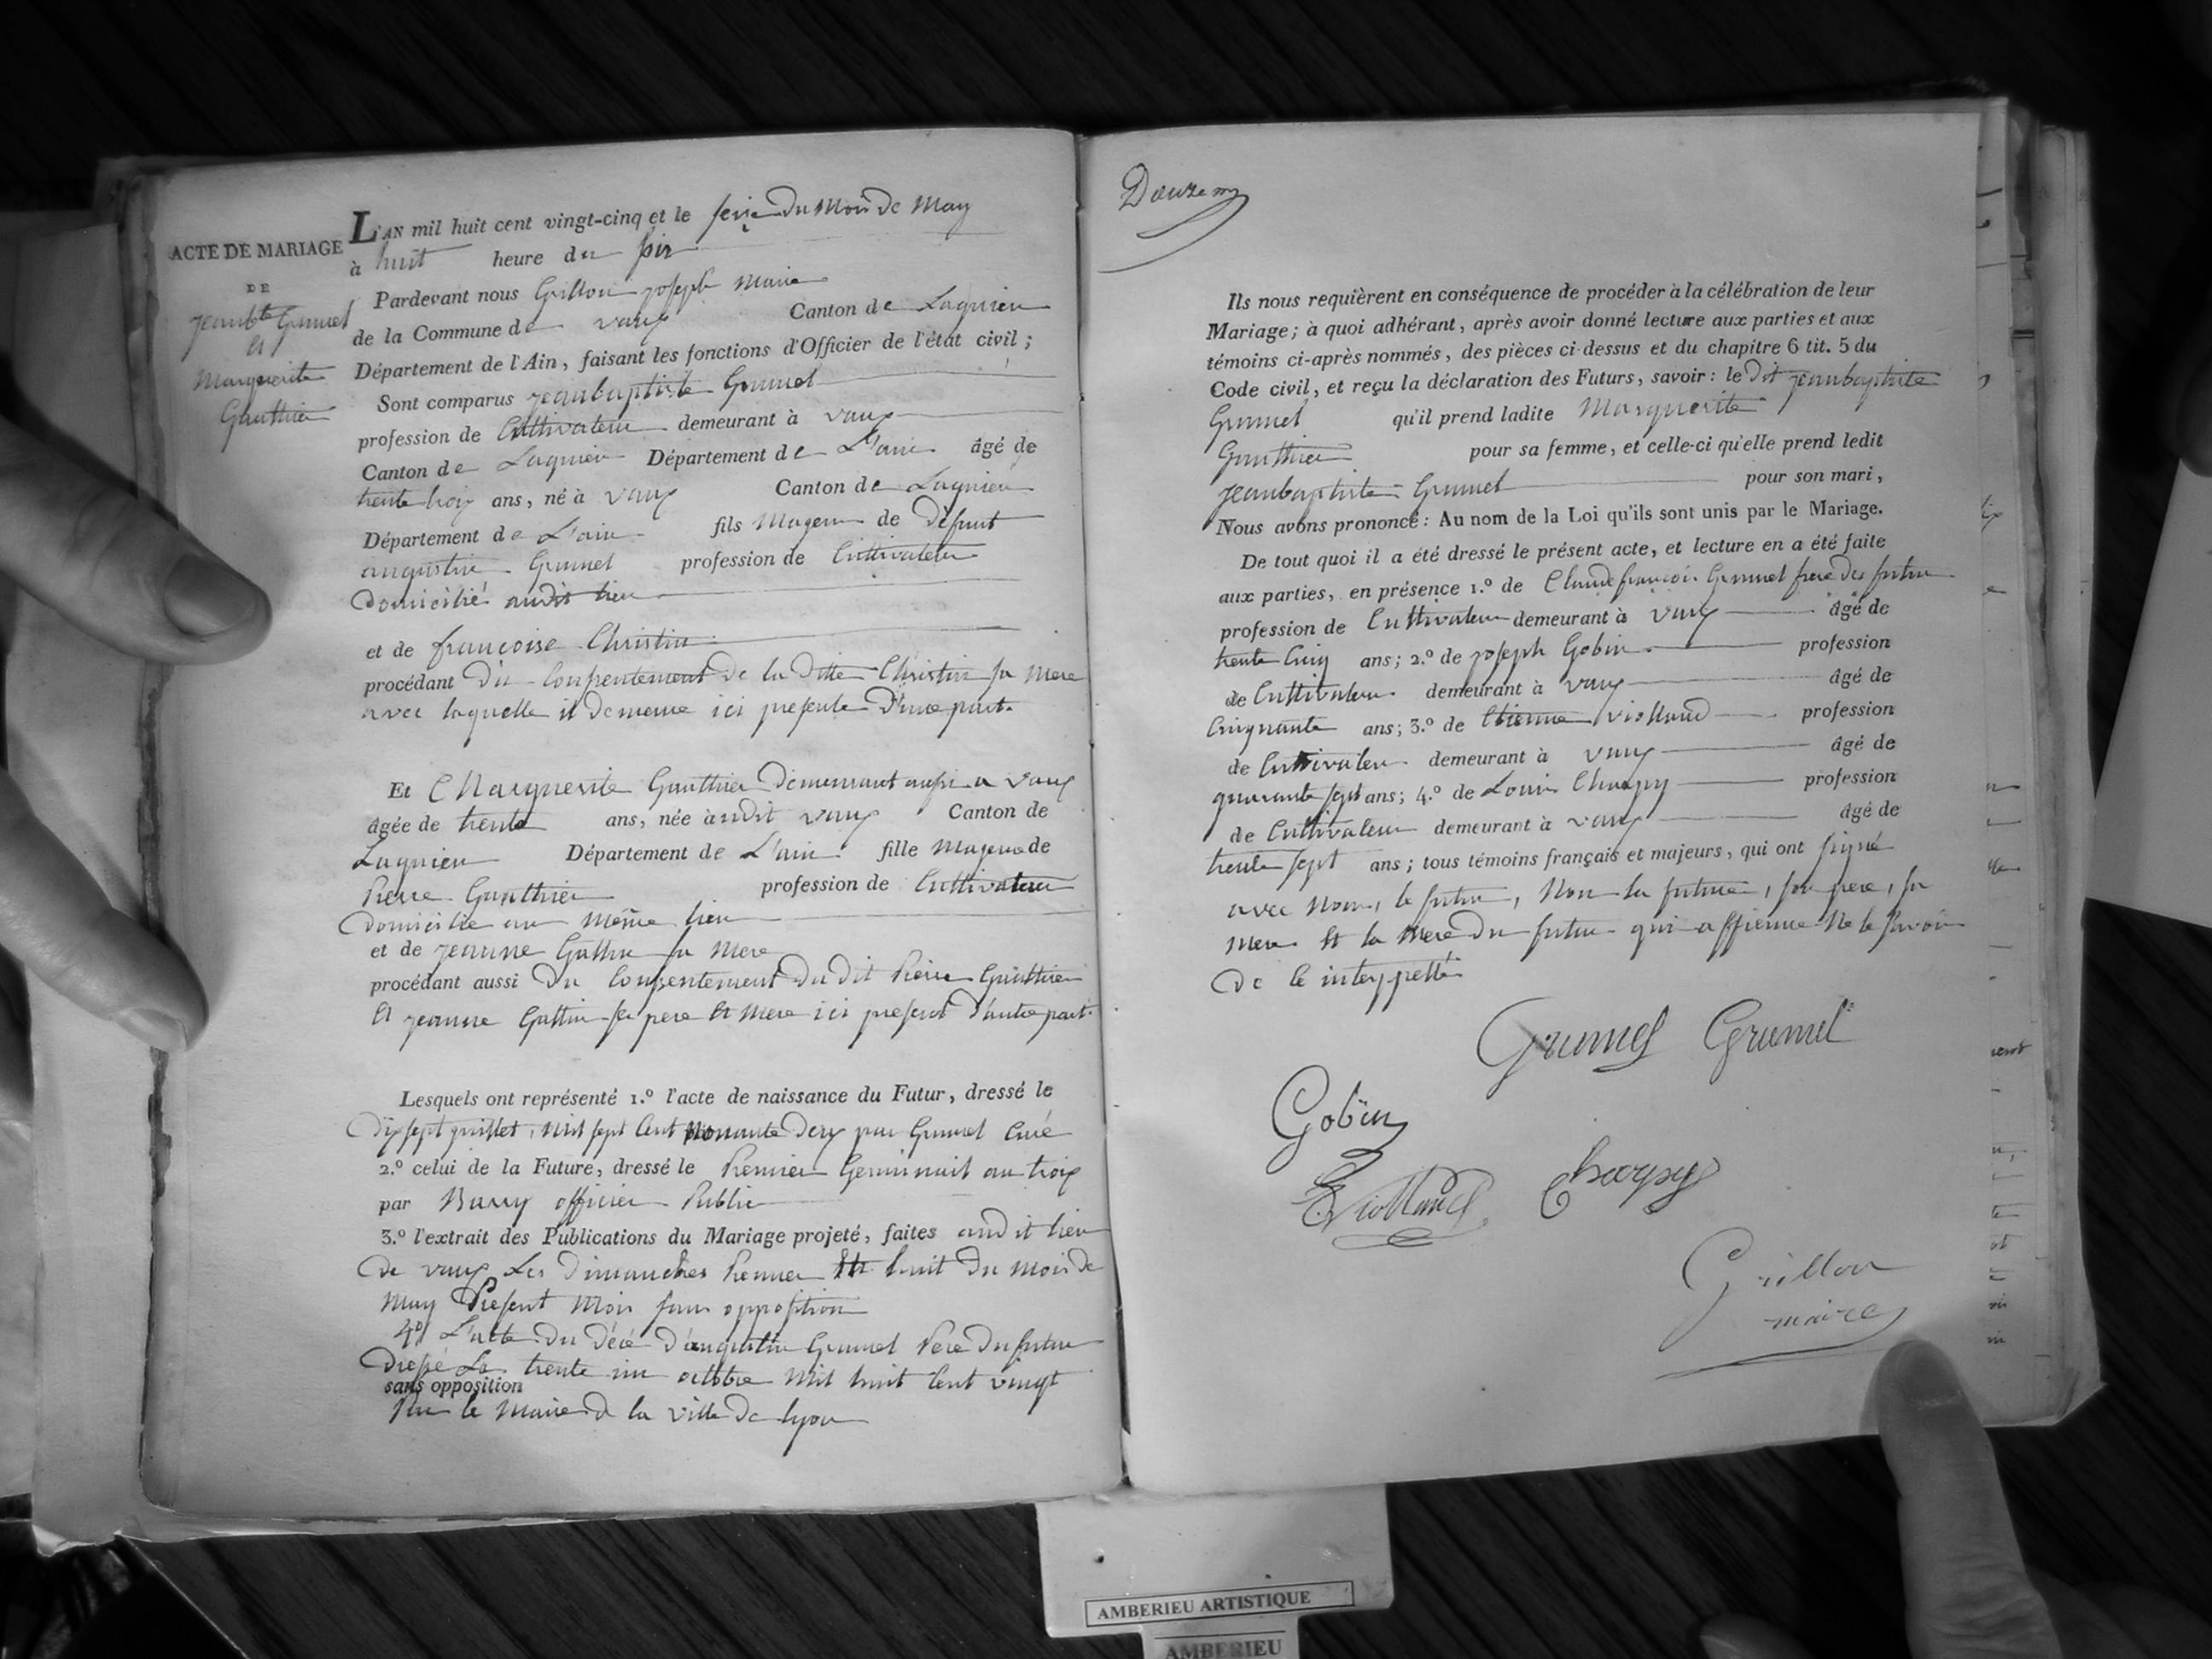 ACTE DE MARIAGE
DE
jean bte Grumel
et
Marguerite
Gauthier
L'AN mil huit cent vingt-cinq et le seize du Mois de May
à huit heure du soir
Pardevant nous Grillon joseph Marie
de la Commune de vaux Canton de Lagnieu
Département de l'Ain, faisant les fonctions d'Officier de l'état civil;
Sont comparus jeanbaptiste Grumel
profession de Cultivateur demeurant à vaux
Canton de Lagnieu Département de L'ain âgé de
trente trois ans, né à vaux Canton de Lagnieu
Département de L'ain fils Majeur de defunt
augustin Grumel profession de Cultivateur
domicilié audit lieu
et de françoise Christin
procédant du Consentement de la ditte Christin sa mere
avec laquelle il demeure ici presente d'une part.
Et Marguerite Gauthier demeurant aussi a vaux
âgée de trente ans, née audit vaux Canton de
Lagnieu Département de L'ain fille Majeure de
Pierre Gauthier profession de Cultivateur
domicilié au même lieu
et de jeanne Guttin sa mere
procédant aussi du Consentement du dit Pierre Gauthier
et jeanne Guttin ses pere et mere ici present d'autre part.
Lesquels ont représenté 1.º l'acte de naissance du Futur, dressé le
dix sept juillet, mil sept Cent Nonante deux par Grumel Curé
2.º celui de la Future, dressé le Premier Germinal an trois
par Barry officier Public
3.º l'extrait des Publications du Mariage projeté, faites audit lieu
de vaux Les dimanches Premier Et huit du mois de
May Present Mois sans opposition
4º L'acte du décé d'augustin Grumel Pere du futur
dressé Le trente un octobre mil huit Cent vingt
sans opposition
Par le Maire de la ville de lyon
Douzem
Ils nous requièrent en conséquence de procéder à la célébration de leur
Mariage; à quoi adhérant, après avoir donné lecture aux parties et aux
témoins ci-après nommés, des pièces ci-dessus et du chapitre 6 tit. 5 du
Code civil, et reçu la déclaration des Futurs, savoir: le dit jeanbaptiste
Grumel qu'il prend ladite Marguerite
Gauthier pour sa femme, et celle-ci qu'elle prend ledit
jeanbaptiste Grumel pour son mari,
Nous avons prononcé: Au nom de la Loi qu'ils sont unis par le Mariage.
De tout quoi il a été dressé le présent acte, et lecture en a été faite
aux parties, en présence 1.º de Claude françois Grumel frere du futur
profession de Cultivateur demeurant à vaux âgé de
trente Cinq ans; 2.º de joseph Gobin profession
de Cultivateur demeurant à vaux âgé de
Cinquante ans; 3.º de Etienne Violland profession
de Cultivateur demeurant à vaux âgé de
quarante sept ans; 4.º de Louis Charpy profession
de Cultivateur demeurant à vaux âgé de
trente sept ans; tous témoins français et majeurs, qui ont signé
avec Nous, le futur, Non la future, son pere, sa
mere Et la mere du futur qui a ffirme Ne le savoir
de ce interppellé
Grumel Grumel
Gobin
EViolland Charpy
Grillon
maire
AMBERIEU ARTISTIQUE
AMBERIEU